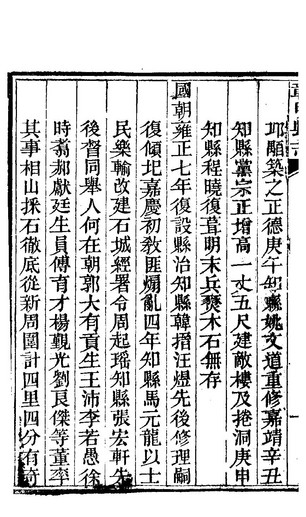 卭願築之正德庚午知縣姚文道重修嘉靖辛丑
知縣黨宗正增高一丈五尺建敵樓及捲洞庚申
知縣程曉復葺明末兵燹木石無存
國朝雍正七年復設縣治知縣韓搢汪煜先後修理嗣
復傾圯嘉慶初敎匪煽亂四年知縣馬元龍以士
民樂輸改建石城經署令周起瑤知縣張宏軒先
後督同舉人何在朝郭大有貢生王沛李若愚徐
時翥郝獻廷生員傅育才楊觀光劉艮傑等董率
其事相山採石徹底從新周圍計四里四分有竒